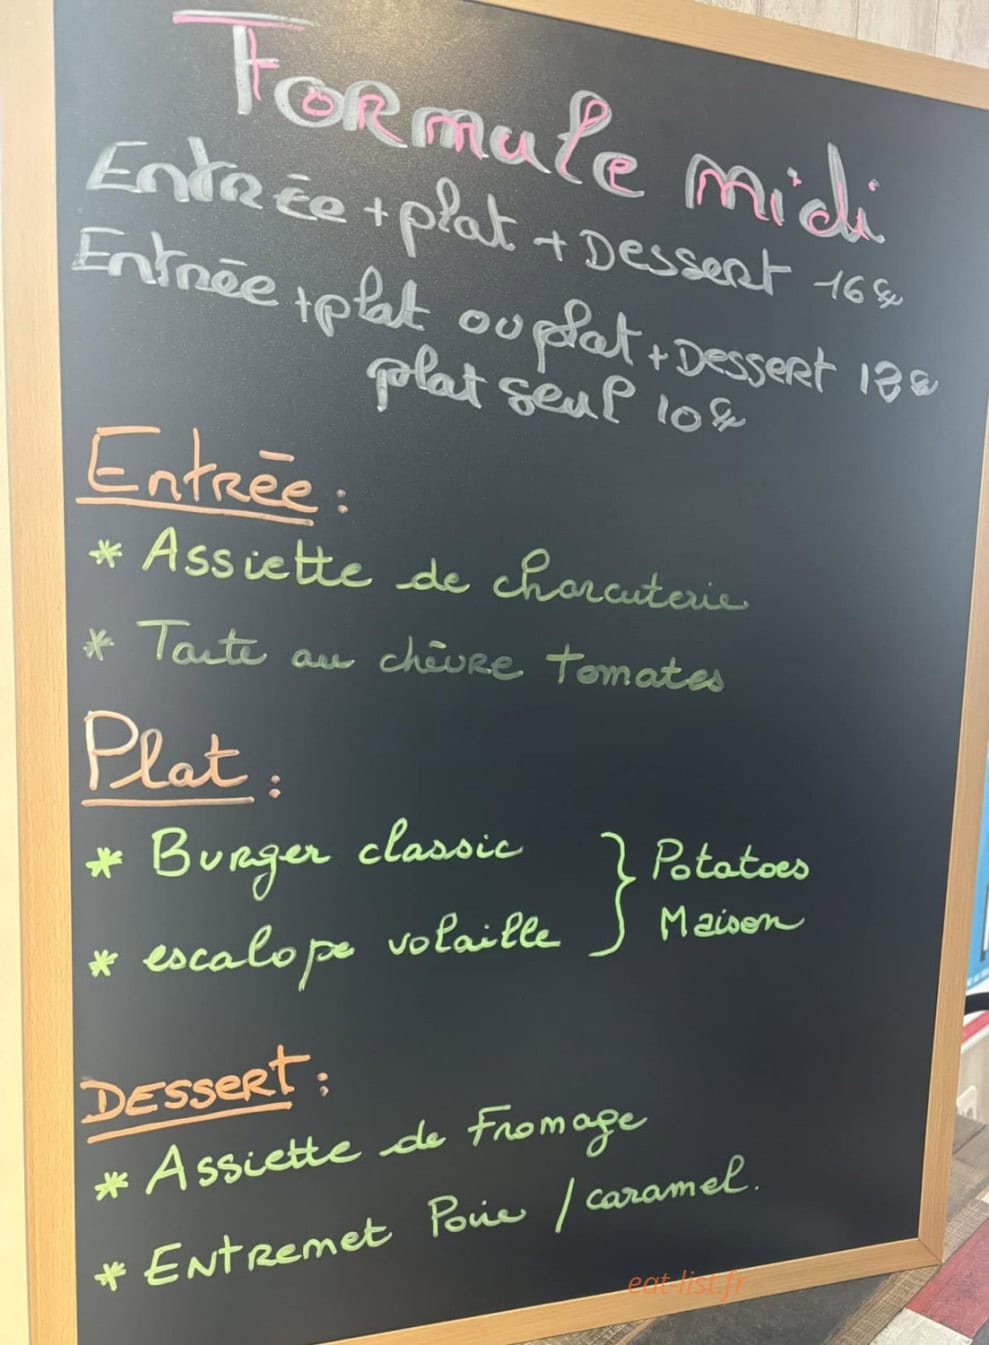 Formule midi
Entrée + plat + Dessert 16€
Entrée + plat ou plat + Dessert 13€
plat seul 10€
Entrée :
* Assiette de charcuterie
* Tarte au chèvre tomates
Plat :
* Burger classic } Potatoes
* escalope volaille } Maison
Dessert :
* Assiette de Fromage
* Entremet Poire / caramel.
eat-list.fr